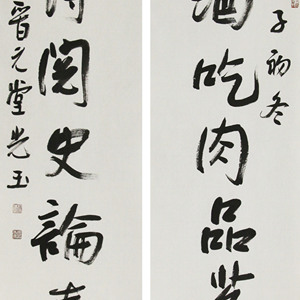 子初冬
酒吃肉品
閱史論
晋元堂光玉